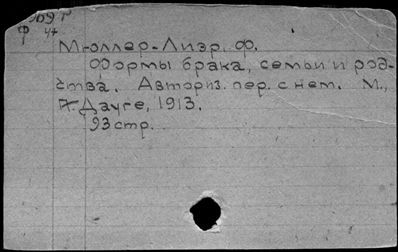 909 Г
Ф 47
Мюллер-Лиэр, Ф.
Формы брака, семьи и род-
ства. Авториз. пер. с нем. М.,
Дауге, 1913.
93 стр.